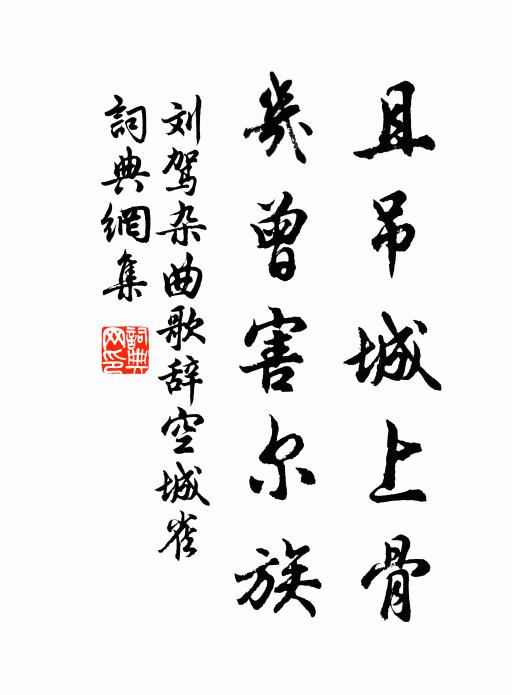 且吊城上骨
几曾害尔族
刘驾杂曲歌辞空城雀
詞典網集
詞典网印